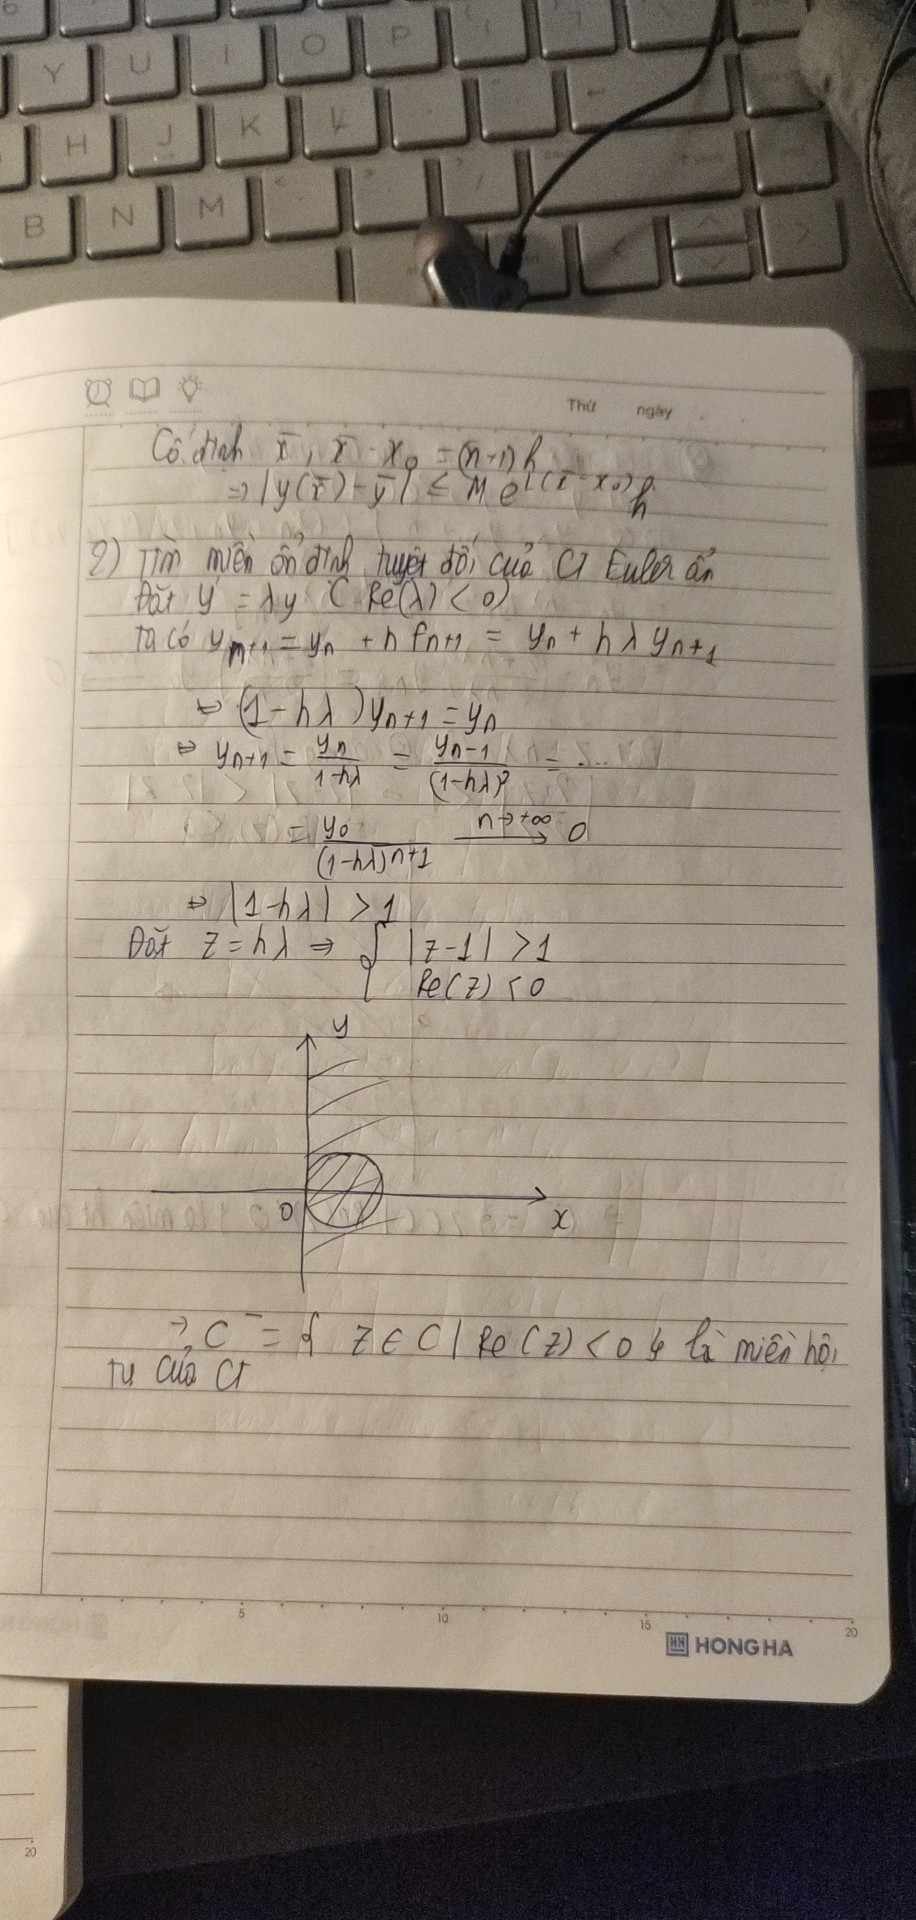 Y U I O P
H J K L
B N M
Thứ ngày
Cố định x̄, x̄ - x₀ = (n+1)h
⇒ |y(x̄) - ȳ| ≤ M e^{L(x̄ - x₀)} h
2) Tìm miền ổn định tuyệt đối của CT Euler ẩn
Đặt y' = λy (Re(λ) < 0)
Ta có yₙ₊₁ = yₙ + h fₙ₊₁ = yₙ + hλyₙ₊₁
⇔ (1-hλ)yₙ₊₁ = yₙ
⇔ yₙ₊₁ = yₙ/(1-hλ) = yₙ₋₁/(1-hλ)² = ...
= y₀/(1-hλ)ⁿ⁺¹ n→+∞ → 0
⇔ |1-hλ| > 1
Đặt z = hλ ⇒ { |z-1| > 1
Re(z) < 0
y
0 x
→ C⁻ = { z ∈ C | Re(z) < 0 } là miền hội
tụ của CT
5 10 15 20
HH HONG HA
20